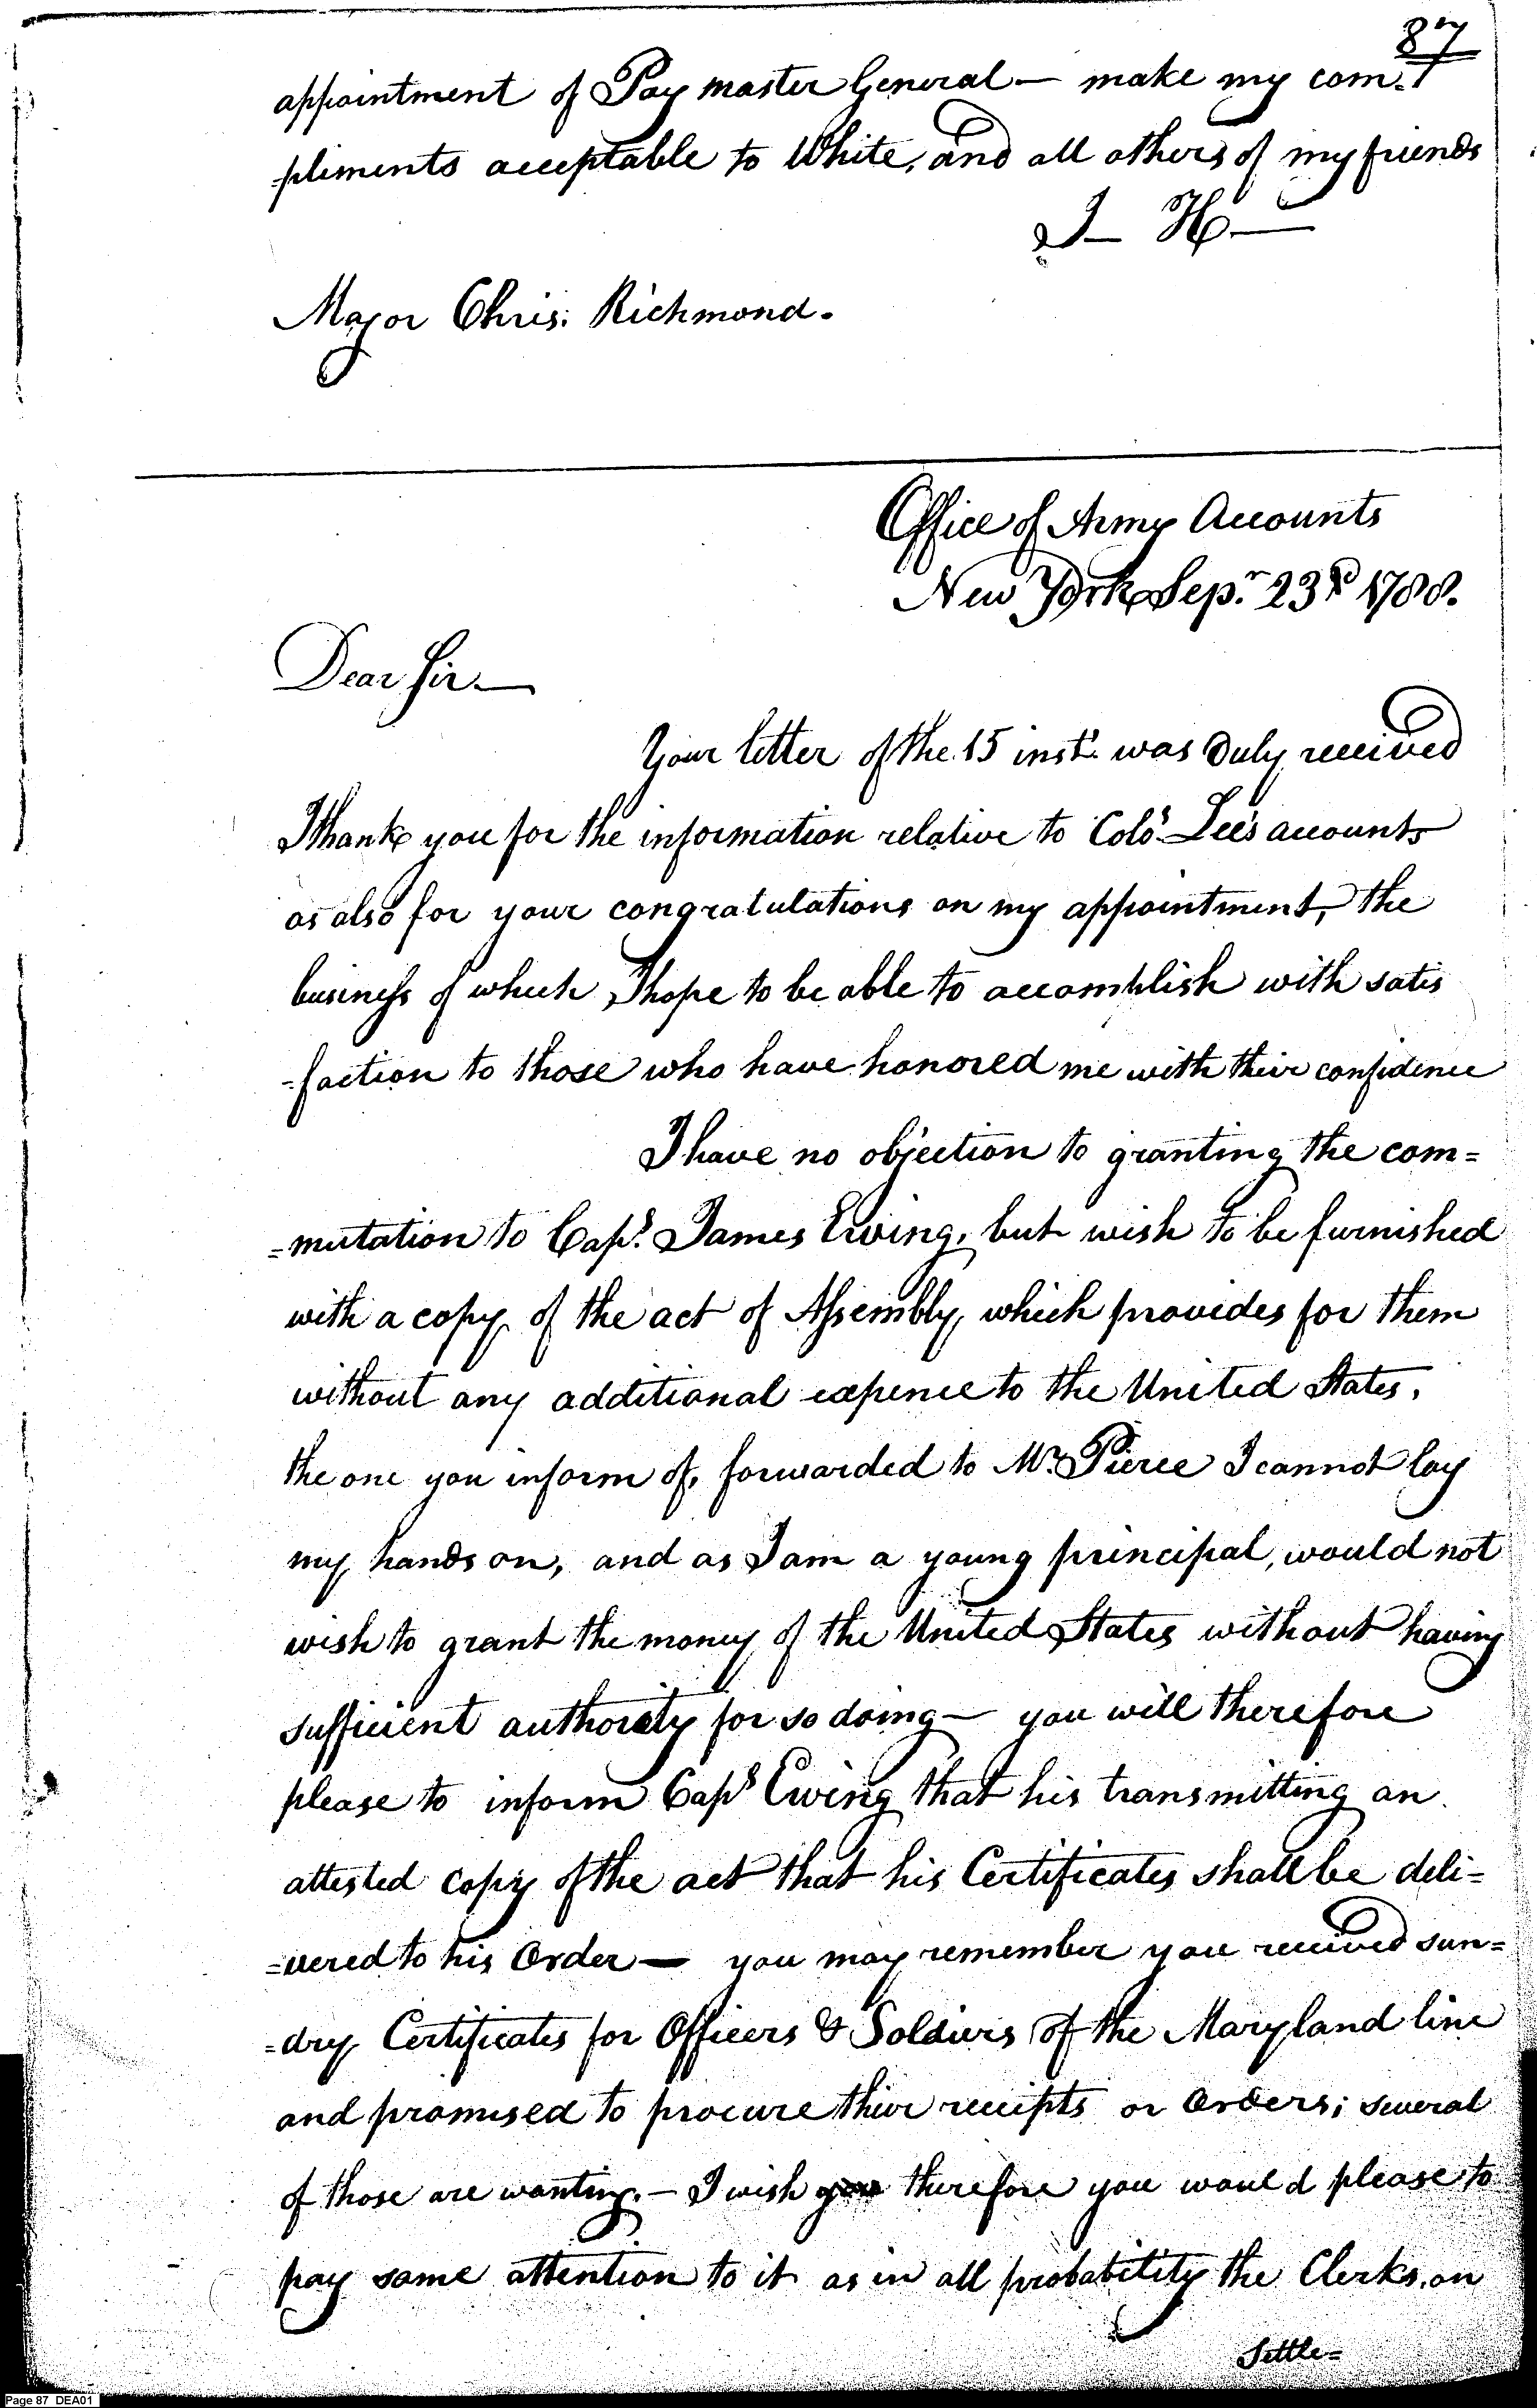 87
appointment of Pay master General — make my com-
-pliments acceptable to White, and all others of my friends
J — H —
Major Chris: Richmond.
Office of Army Accounts
New York Sepr. 23d 1788.
Dear Sir —
Your letter of the 15 inst. was duly received
I thank you for the information relative to Colo. Lee's accounts
as also for your congratulations on my appointment, the
business of which I hope to be able to accomplish with satis
-faction to those who have honored me with their confidence
I have no objection to granting the com=
=mutation to Capt. James Ewing, but wish to be furnished
with a copy of the act of Assembly, which provides for them
without any additional expence to the United States,
the one you inform of, forwarded to Mr. Pierce I cannot lay
my hands on, and as I am a young principal, would not
wish to grant the money of the United States without having
sufficient authority for so doing — you will therefore
please to inform Capt Ewing that his transmitting an
attested copy of the act that his Certificates shall be deli=
=vered to his Order — you may remember you received sun=
=dry Certificates for Officers & Soldiers of the Maryland line
and promised to procure their receipts or Orders; several
of those are wanting. — I wish you therefore you would please to
pay some attention to it as in all probability the Clerks, on
Settle=
Page 87 DEA01